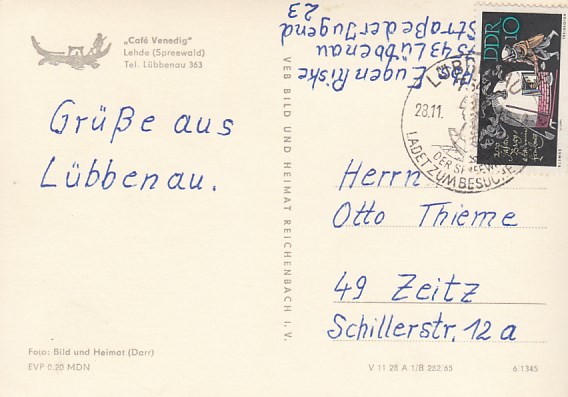 „Café Venedig“
Lehde (Spreewald)
Tel. Lübbenau 363
Grüße aus
Lübbenau.
Foto: Bild und Heimat (Darr)
EVP 0.20 MDN
VEB BILD UND HEIMAT REICHENBACH I. V.
Eugen Riske
7543 Lübbenau
Straße der Jugend
23
DDR 10
28.11.
LADET ZUM BESUCHE
Herrn
Otto Thieme
49 Zeitz
Schillerstr. 12a
V 11 28 A 1/B 282/65
6/1345